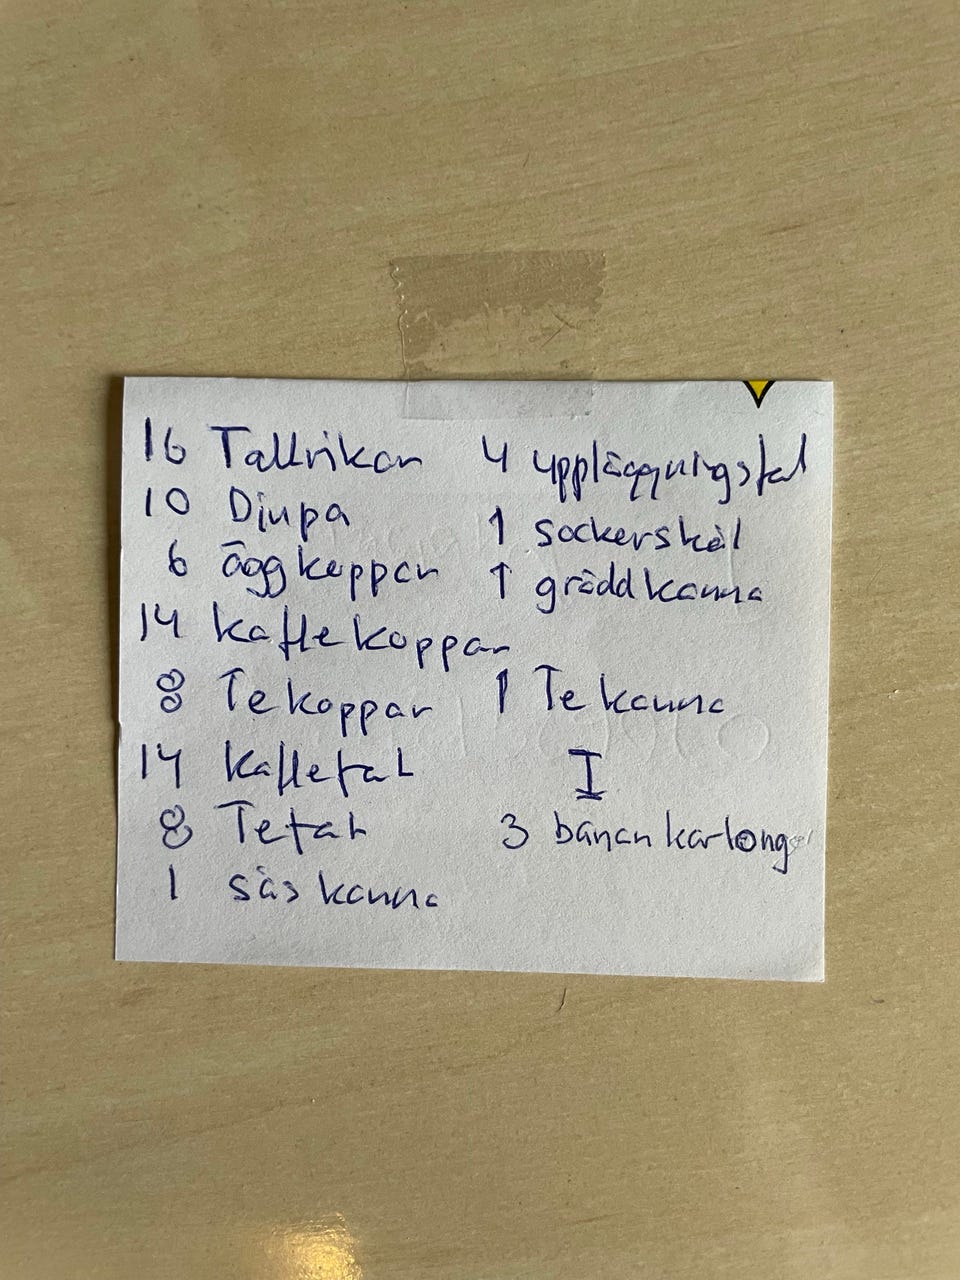 16 Tallrikar
10 Djupa
6 äggkoppar
14 kaffekoppar
8 Tekoppar
14 kaffefat
8 Tefat
1 såskanna
4 uppläggningsfat
1 sockerskål
1 gräddkanna
1 Tekanna
I
3 banankartonger